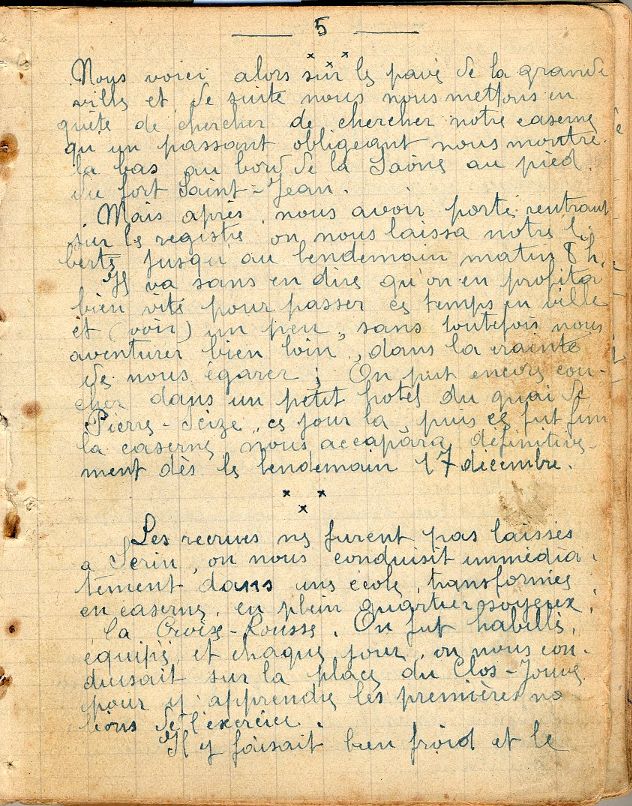 5
Nous voici alors sur le pavé de la grande
ville et de suite nous nous mettons en
quête de chercher de chercher notre caserne
qu un passant obligeant nous montre
la bas au bord de la Saône au pied
du fort Saint-Jean.
Mais après nous avoir porté rentrant
sur le registre on nous laissa notre li
berté jusqu au lendemain matin 8 h.
Il va sans en dire qu'on en profita
bien vite pour passer ce temps en ville
et (voir) un peu, sans toutefois nous
aventurer bien loin, dans la crainte
de nous égarer; On put encore cou-
cher dans un petit hotel du quai de
Pierre-Seize, ce jour la, puis ce fut fini
la caserne nous accapara définitive-
ment dès le lendemain 17 décembre.
Les recrues ne furent pas laissés
a Serin, on nous conduisit immédia-
tement dans une école, transformée
en caserne, en plein quartier soyeux,
la Croix-Rousse. On fut habillé,
équipé et chaque jour, on nous con-
duisait sur la place du Clos-Jouve,
pour y apprendre les premières no
tions de l'exercice.
Il y faisait bien froid et le